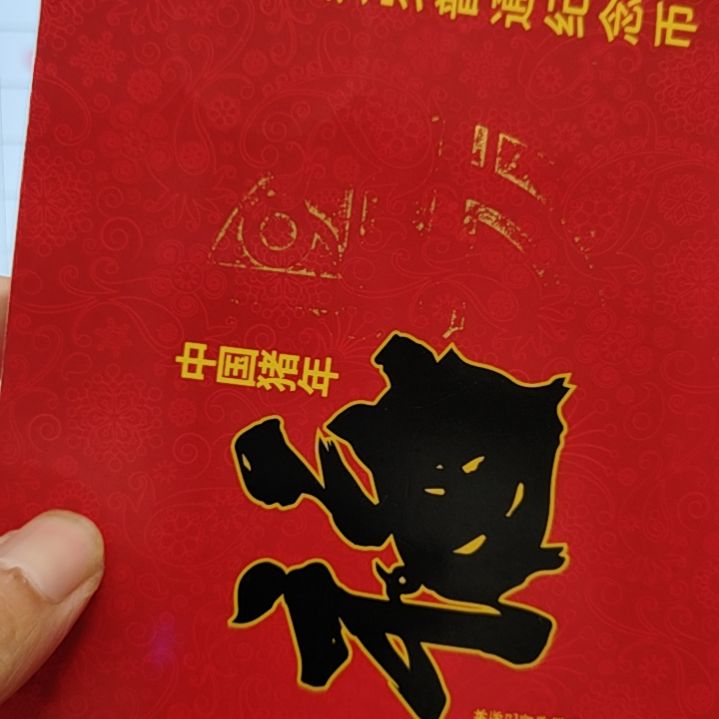 普通纪念币
中国猪年
福